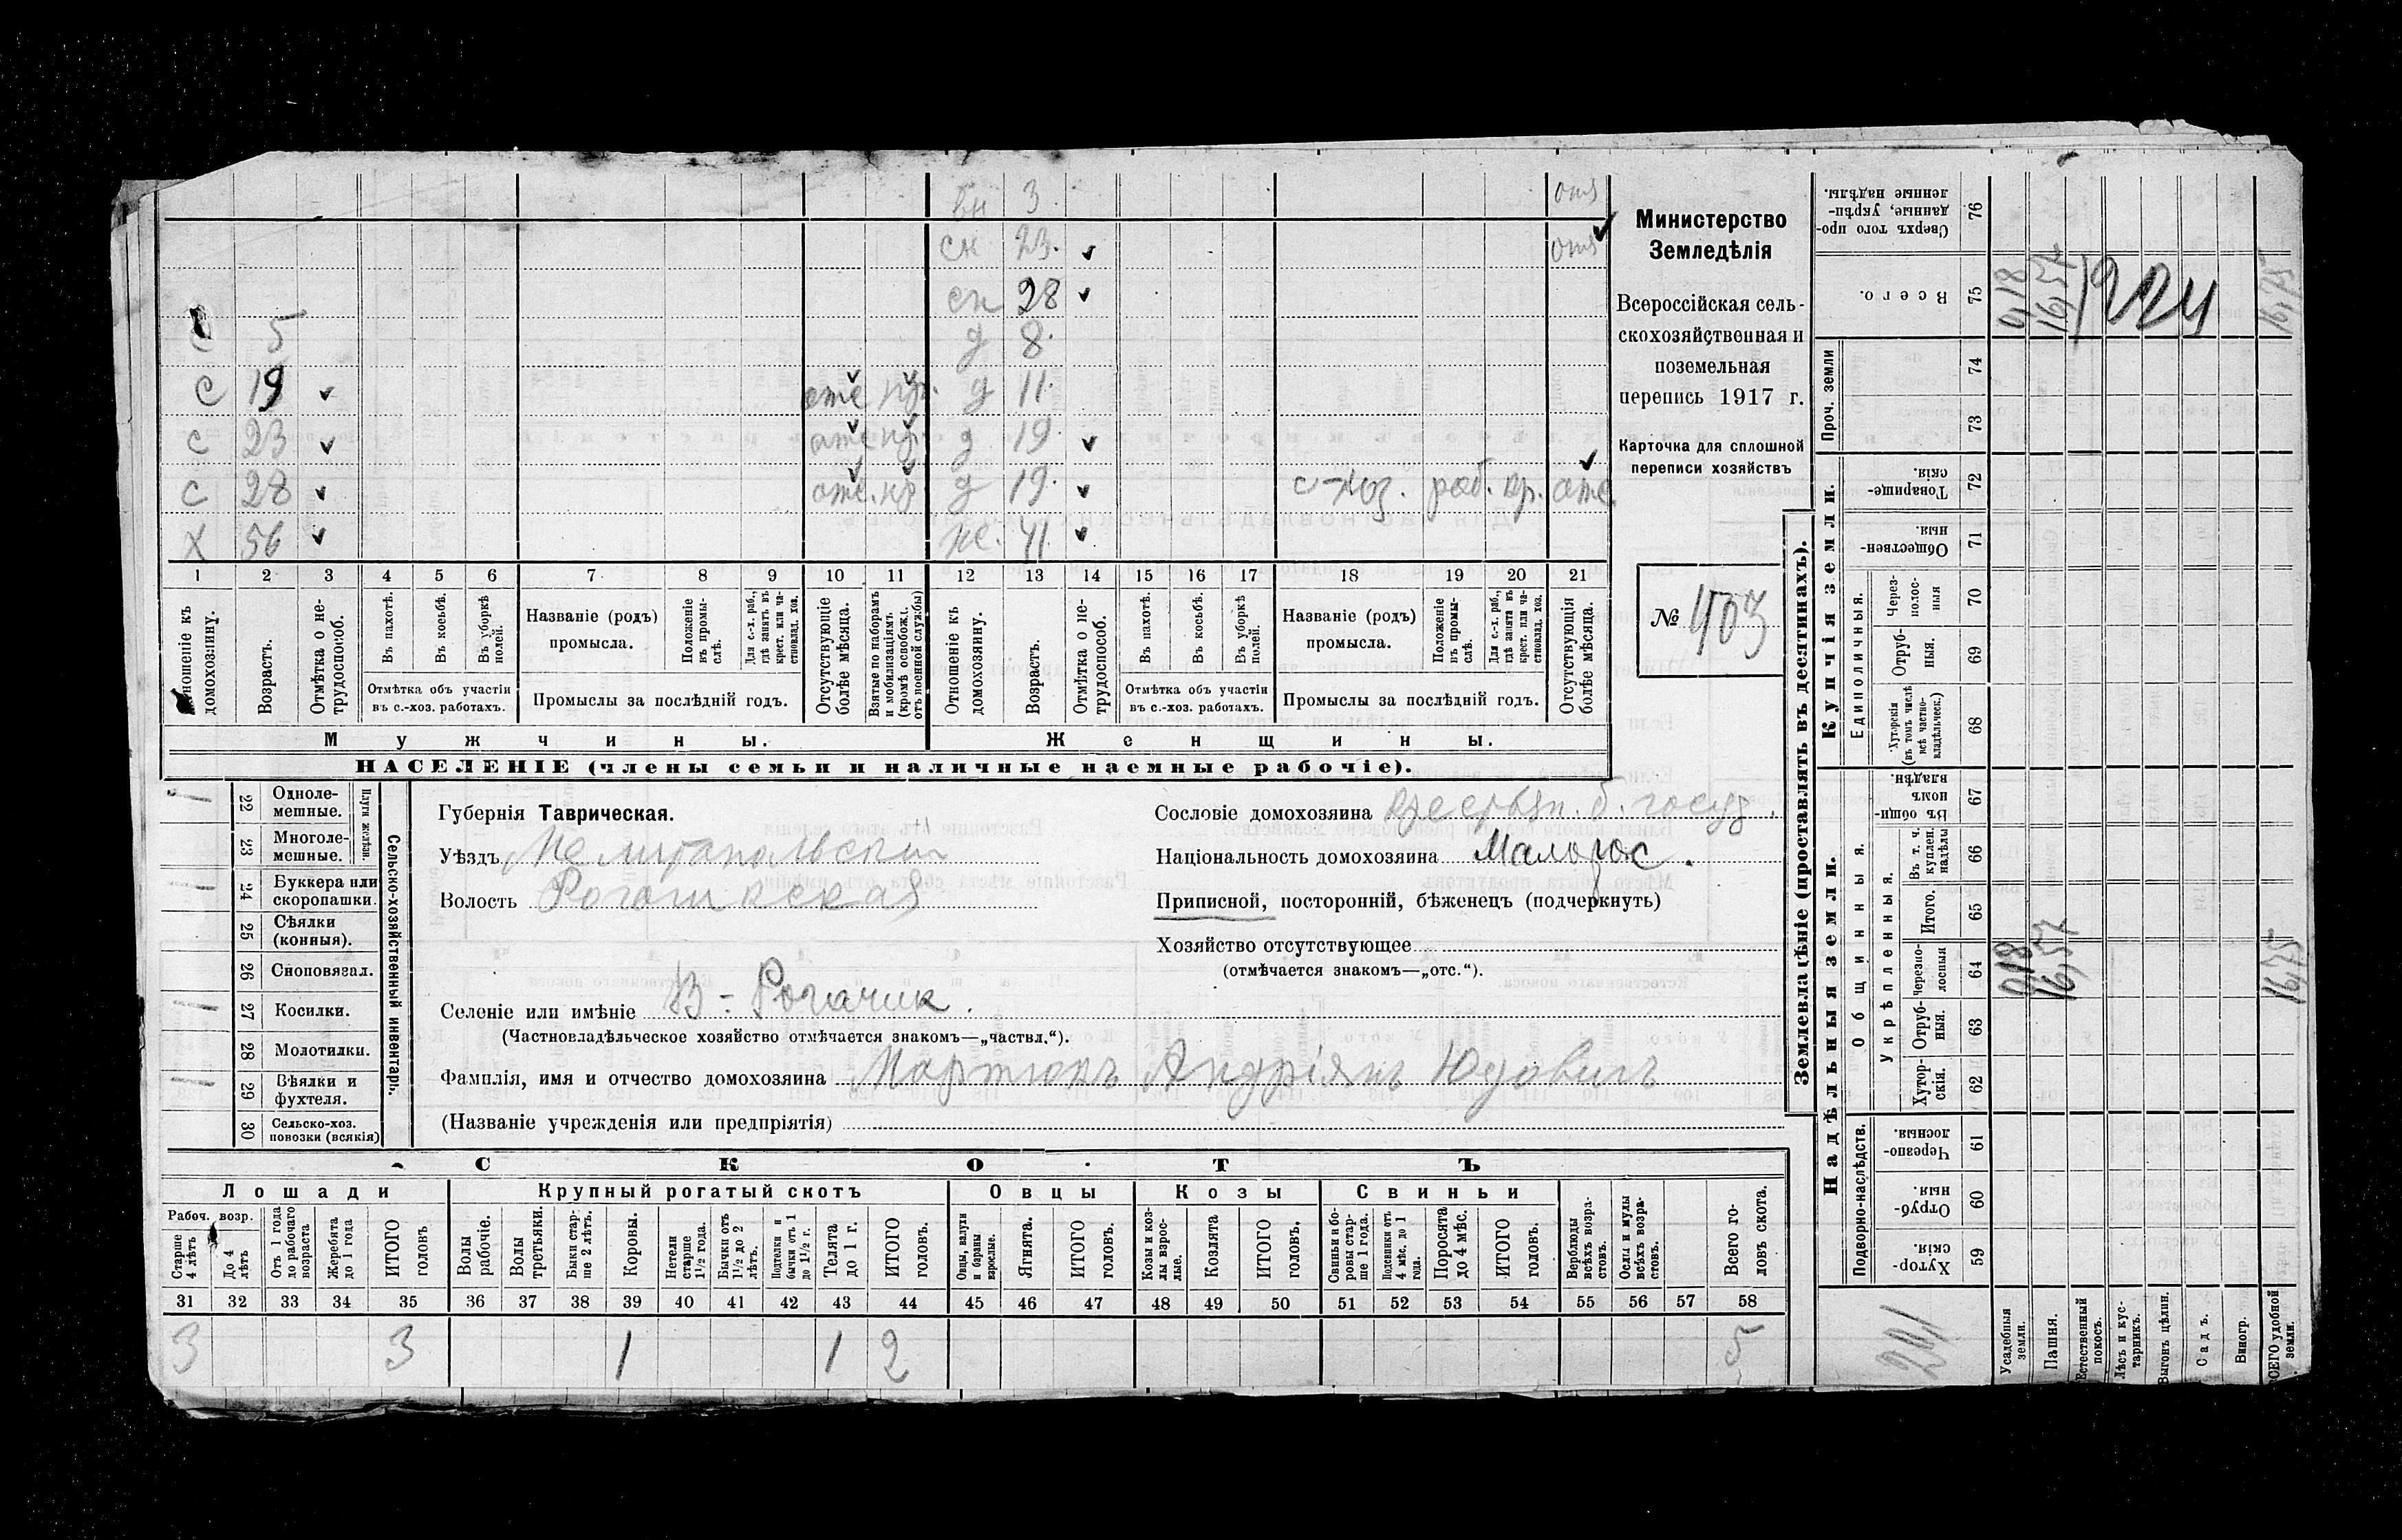 вн 3 отс
сн 23. отс
сн 28
5 д 8.
с 19 отс кр. д 11.
с 23 отс кр. д 19
с 28 отс. кр д 19. с-хоз. раб. кр. отс
х 56 же. 41
1 2 3 4 5 6 7 8 9 10 11 12 13 14 15 16 17 18 19 20 21
Отношеніе къ домохозяину.
Возрастъ.
Отмѣтка о нетрудоспособ.
Въ пахотѣ.
Въ косьбѣ.
Въ уборкѣ полей.
Отмѣтка объ участіи
въ с.-хоз. работахъ.
Названіе (родъ)
промысла.
Положеніе въ промыслѣ.
Для с.-х. раб., гдѣ занятъ въ крест. или частновлад. хоз.
Промыслы за послѣдній годъ.
Отсутствующіе болѣе мѣсяца.
Взятые по наборамъ и мобилизаціямъ (кромѣ освобожд. отъ военной службы)
Отношеніе къ домохозяину.
Возрастъ.
Отмѣтка о нетрудоспособ.
Въ пахотѣ.
Въ косьбѣ.
Въ уборкѣ полей.
Отмѣтка объ участіи
въ с.-хоз. работахъ.
Названіе (родъ)
промысла.
Положеніе въ промыслѣ.
Для с.-х. раб., гдѣ занята въ крест. или частновлад. хоз.
Промыслы за послѣдній годъ.
Отсутствующія болѣе мѣсяца.
Мужчины. Женщины.
НАСЕЛЕНІЕ (члены семьи и наличные наемные рабочіе).
Министерство
Земледѣлія
Всероссійская сель-
скохозяйственная и
поземельная
перепись 1917 г.
Карточка для сплошной
переписи хозяйствъ
№ 403
1 22 Одноле-
мешные.
23 Многоле-
мешные.
Плуги желѣзн.
1 24 Буккера или
скоропашки.
25 Сѣялки
(конныя).
26 Сноповязал.
1 27 Косилки.
28 Молотилки.
1 29 Вѣялки и
фухтеля.
30 Сельско-хоз.
повозки (всякія)
Сельско-хозяйственный инвентарь.
Губернія Таврическая.
Уѣздъ Мелитопольскій
Волость Рогачикская
Селеніе или имѣніе В-Рогачик.
(Частновладѣльческое хозяйство отмѣчается знакомъ—„частвл.“).
Фамилія, имя и отчество домохозяина Мартюкъ Андріянъ Юдовичъ
(Названіе учрежденія или предпріятія)
Сословіе домохозяина крестьян. б. госуд.
Національность домохозяина Малорос.
Приписной, посторонній, бѣженецъ (подчеркнуть)
Хозяйство отсутствующее
(отмѣчается знакомъ—„отс.“).
СКОТЪ
Лошади Крупный рогатый скотъ Овцы Козы Свиньи
Рабоч. возр.
Старше 4 лѣтъ
До 4 лѣтъ
Отъ 1 года до рабочаго возраста
Жеребята до 1 года
ИТОГО головъ
Волы рабочіе.
Волы третьяки.
Быки старше 2 лѣтъ.
Коровы.
Нетели старше 1½ года.
Бычки отъ 1½ до 2 лѣтъ.
Подтелки и бычки отъ 1 до 1½ г.
Телята до 1 г.
ИТОГО головъ.
Овцы, валухи и бараны взрослые.
Ягнята.
ИТОГО головъ.
Козы и козлы взрослые.
Козлята
ИТОГО головъ.
Свиньи и боровы старше 1 года.
Подсвинки отъ 4 мѣс. до 1 года.
Поросята до 4 мѣс.
ИТОГО головъ.
Верблюды всѣхъ возрастовъ.
Ослы и мулы всѣхъ возрастовъ.
Всего головъ скота.
31 32 33 34 35 36 37 38 39 40 41 42 43 44 45 46 47 48 49 50 51 52 53 54 55 56 57 58
3 3 1 1 2 5
Землевладѣніе (проставлять въ десятинахъ).
Купчія земли.
Надѣльныя земли.
Сверхъ того проданные, укрѣпленные надѣлы. 76
Всего. 75 0,18 16,57 224 16,75
Проч. земли 74
73
Товарищескія. 72
Общественныя 71
Единоличныя.
Черезполосныя 70
Отрубныя. 69
Хуторскія (въ томъ числѣ всѣ частновладѣльческ.) 68
Общинныя.
Въ общинномъ владѣн. 67
Укрѣпленныя.
Въ т. ч. куплен. надѣлы 66
Итого. 65
Черезполосныя 64 0,18 16,57 16,75
Отрубныя. 63
Хуторскія. 62
Подворно-наслѣдств.
Черезполосныя. 61
Отрубныя. 60
Хуторскія. 59
201
Усадебныя земли.
Пашня.
Естественный покосъ.
Лѣсъ и кустарникъ.
Выгонъ цѣлин.
Садъ.
Виногр.
ВСЕГО удобной земли.